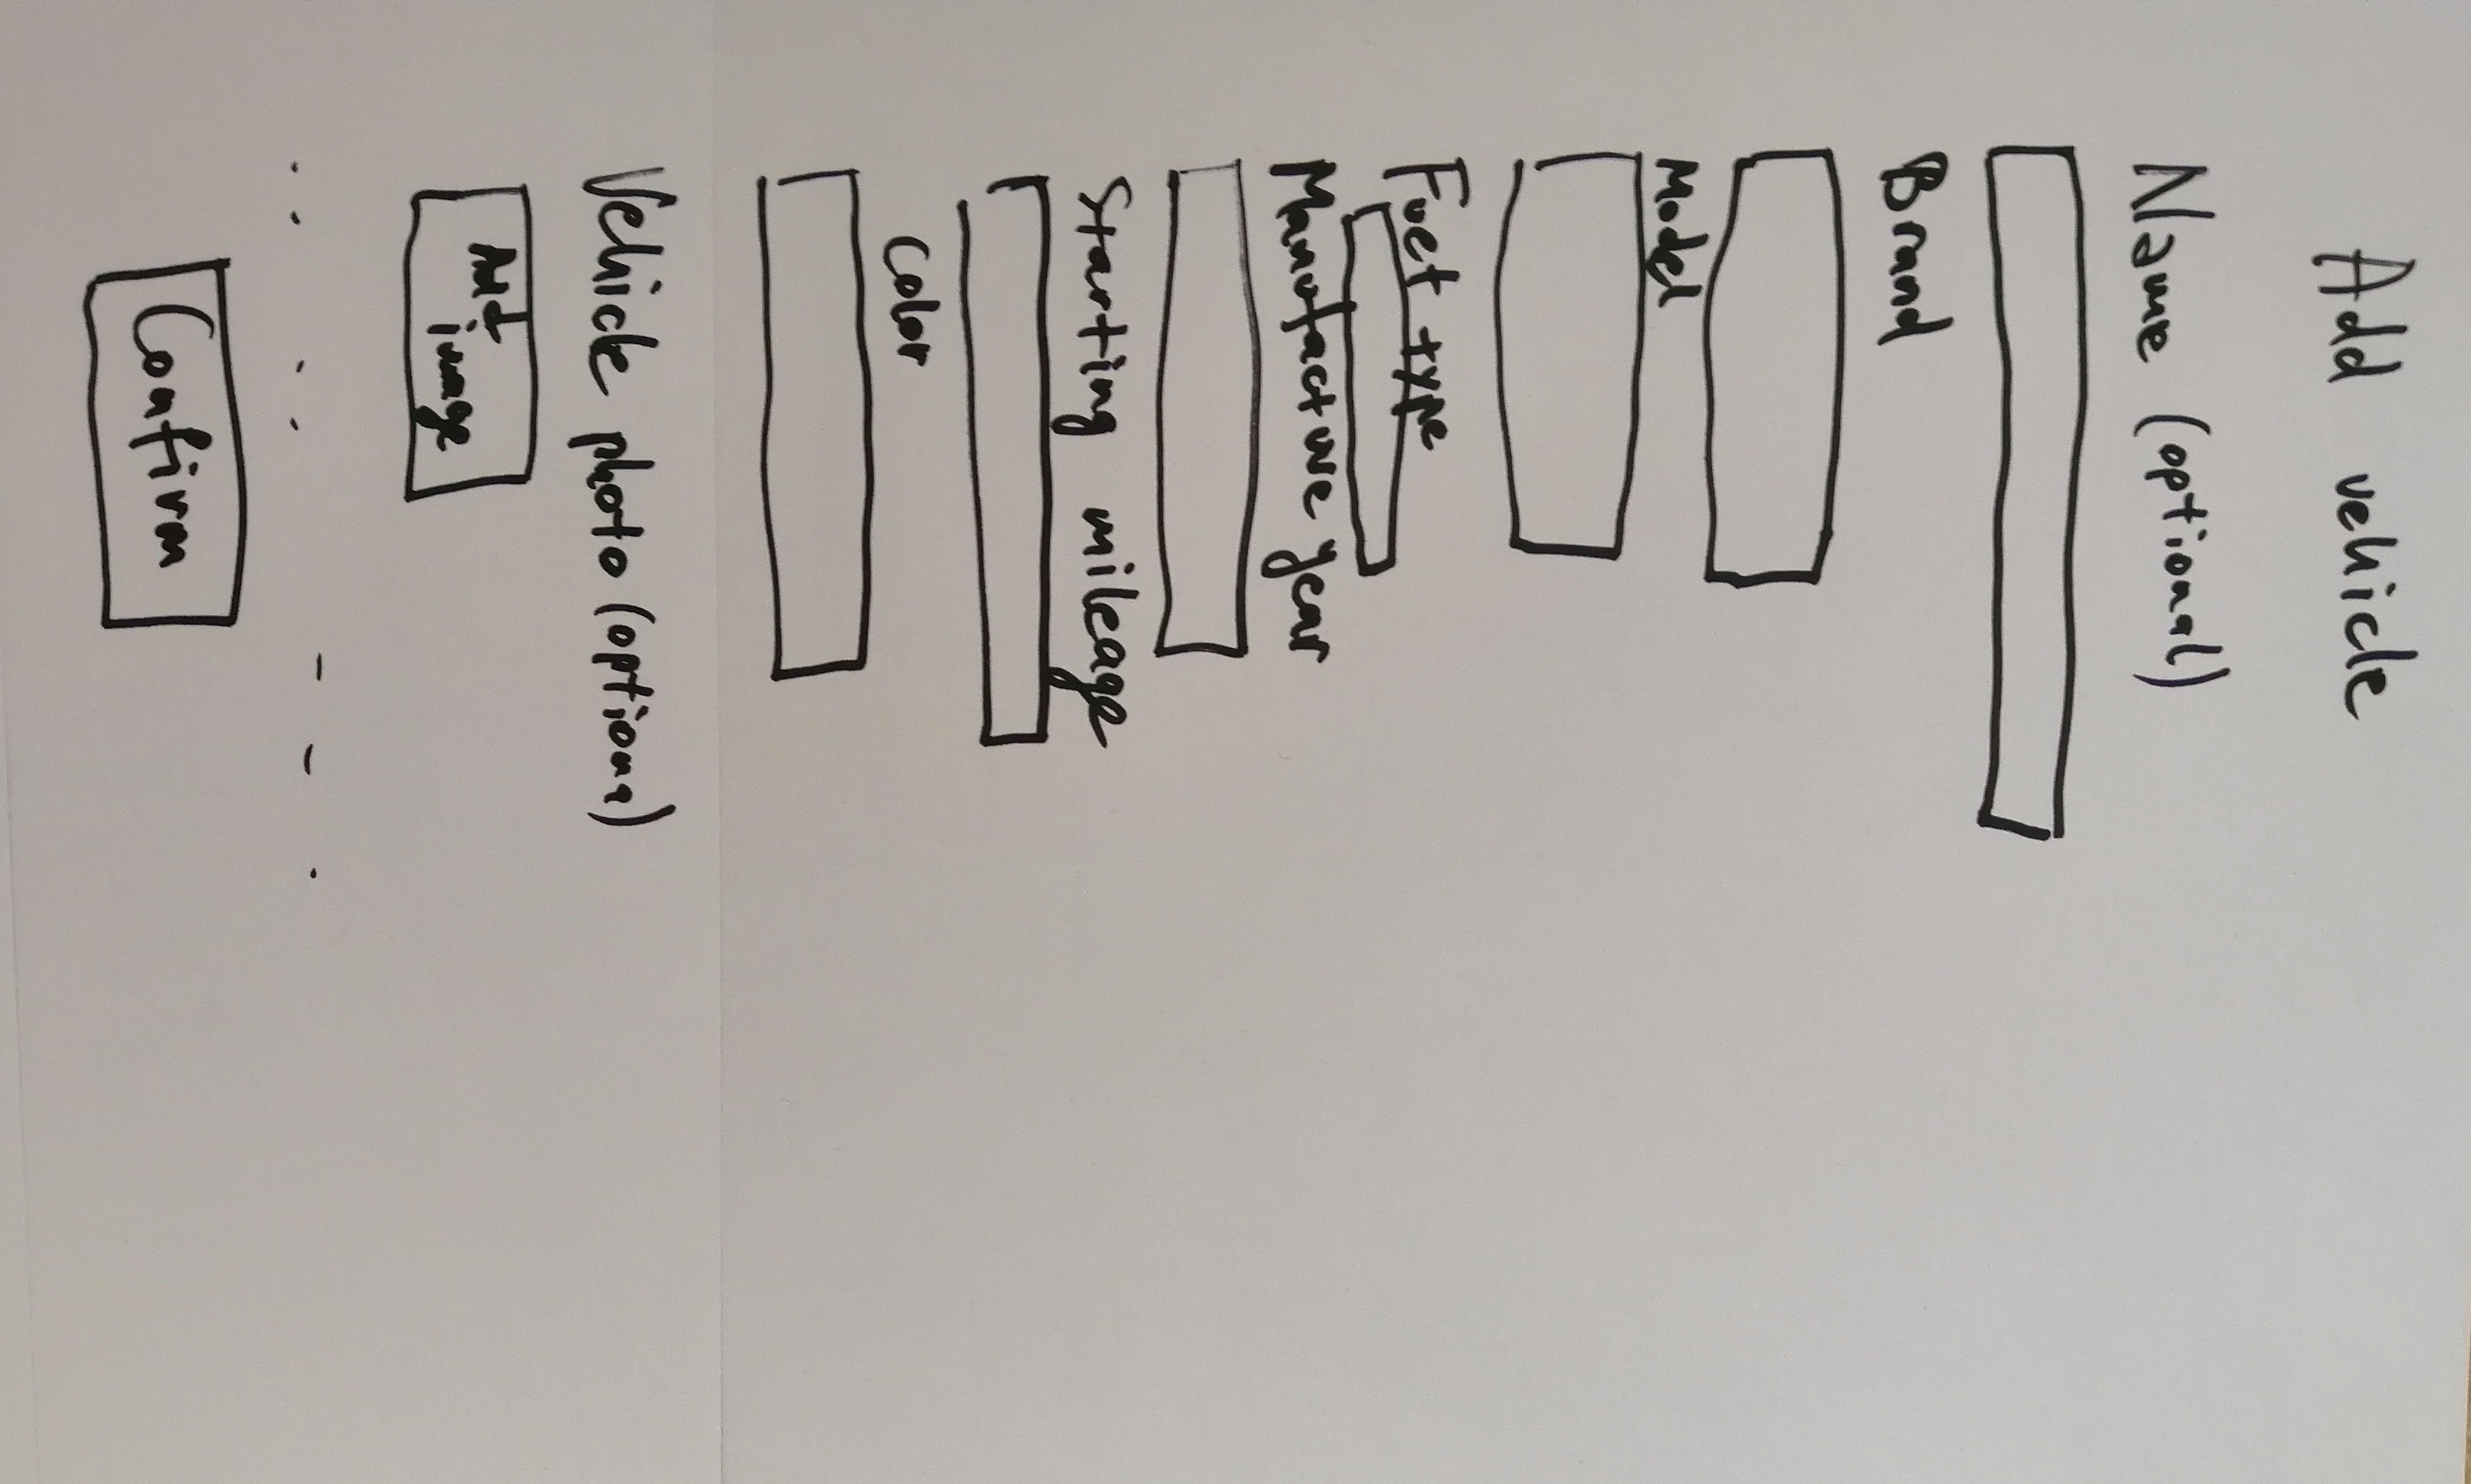 Add vehicle
Name (optional)
Brand
Model
Fuet type
Manufacture year
Starting mileage
Color
Vehicle photo (optiona)
Add
image
Confirm